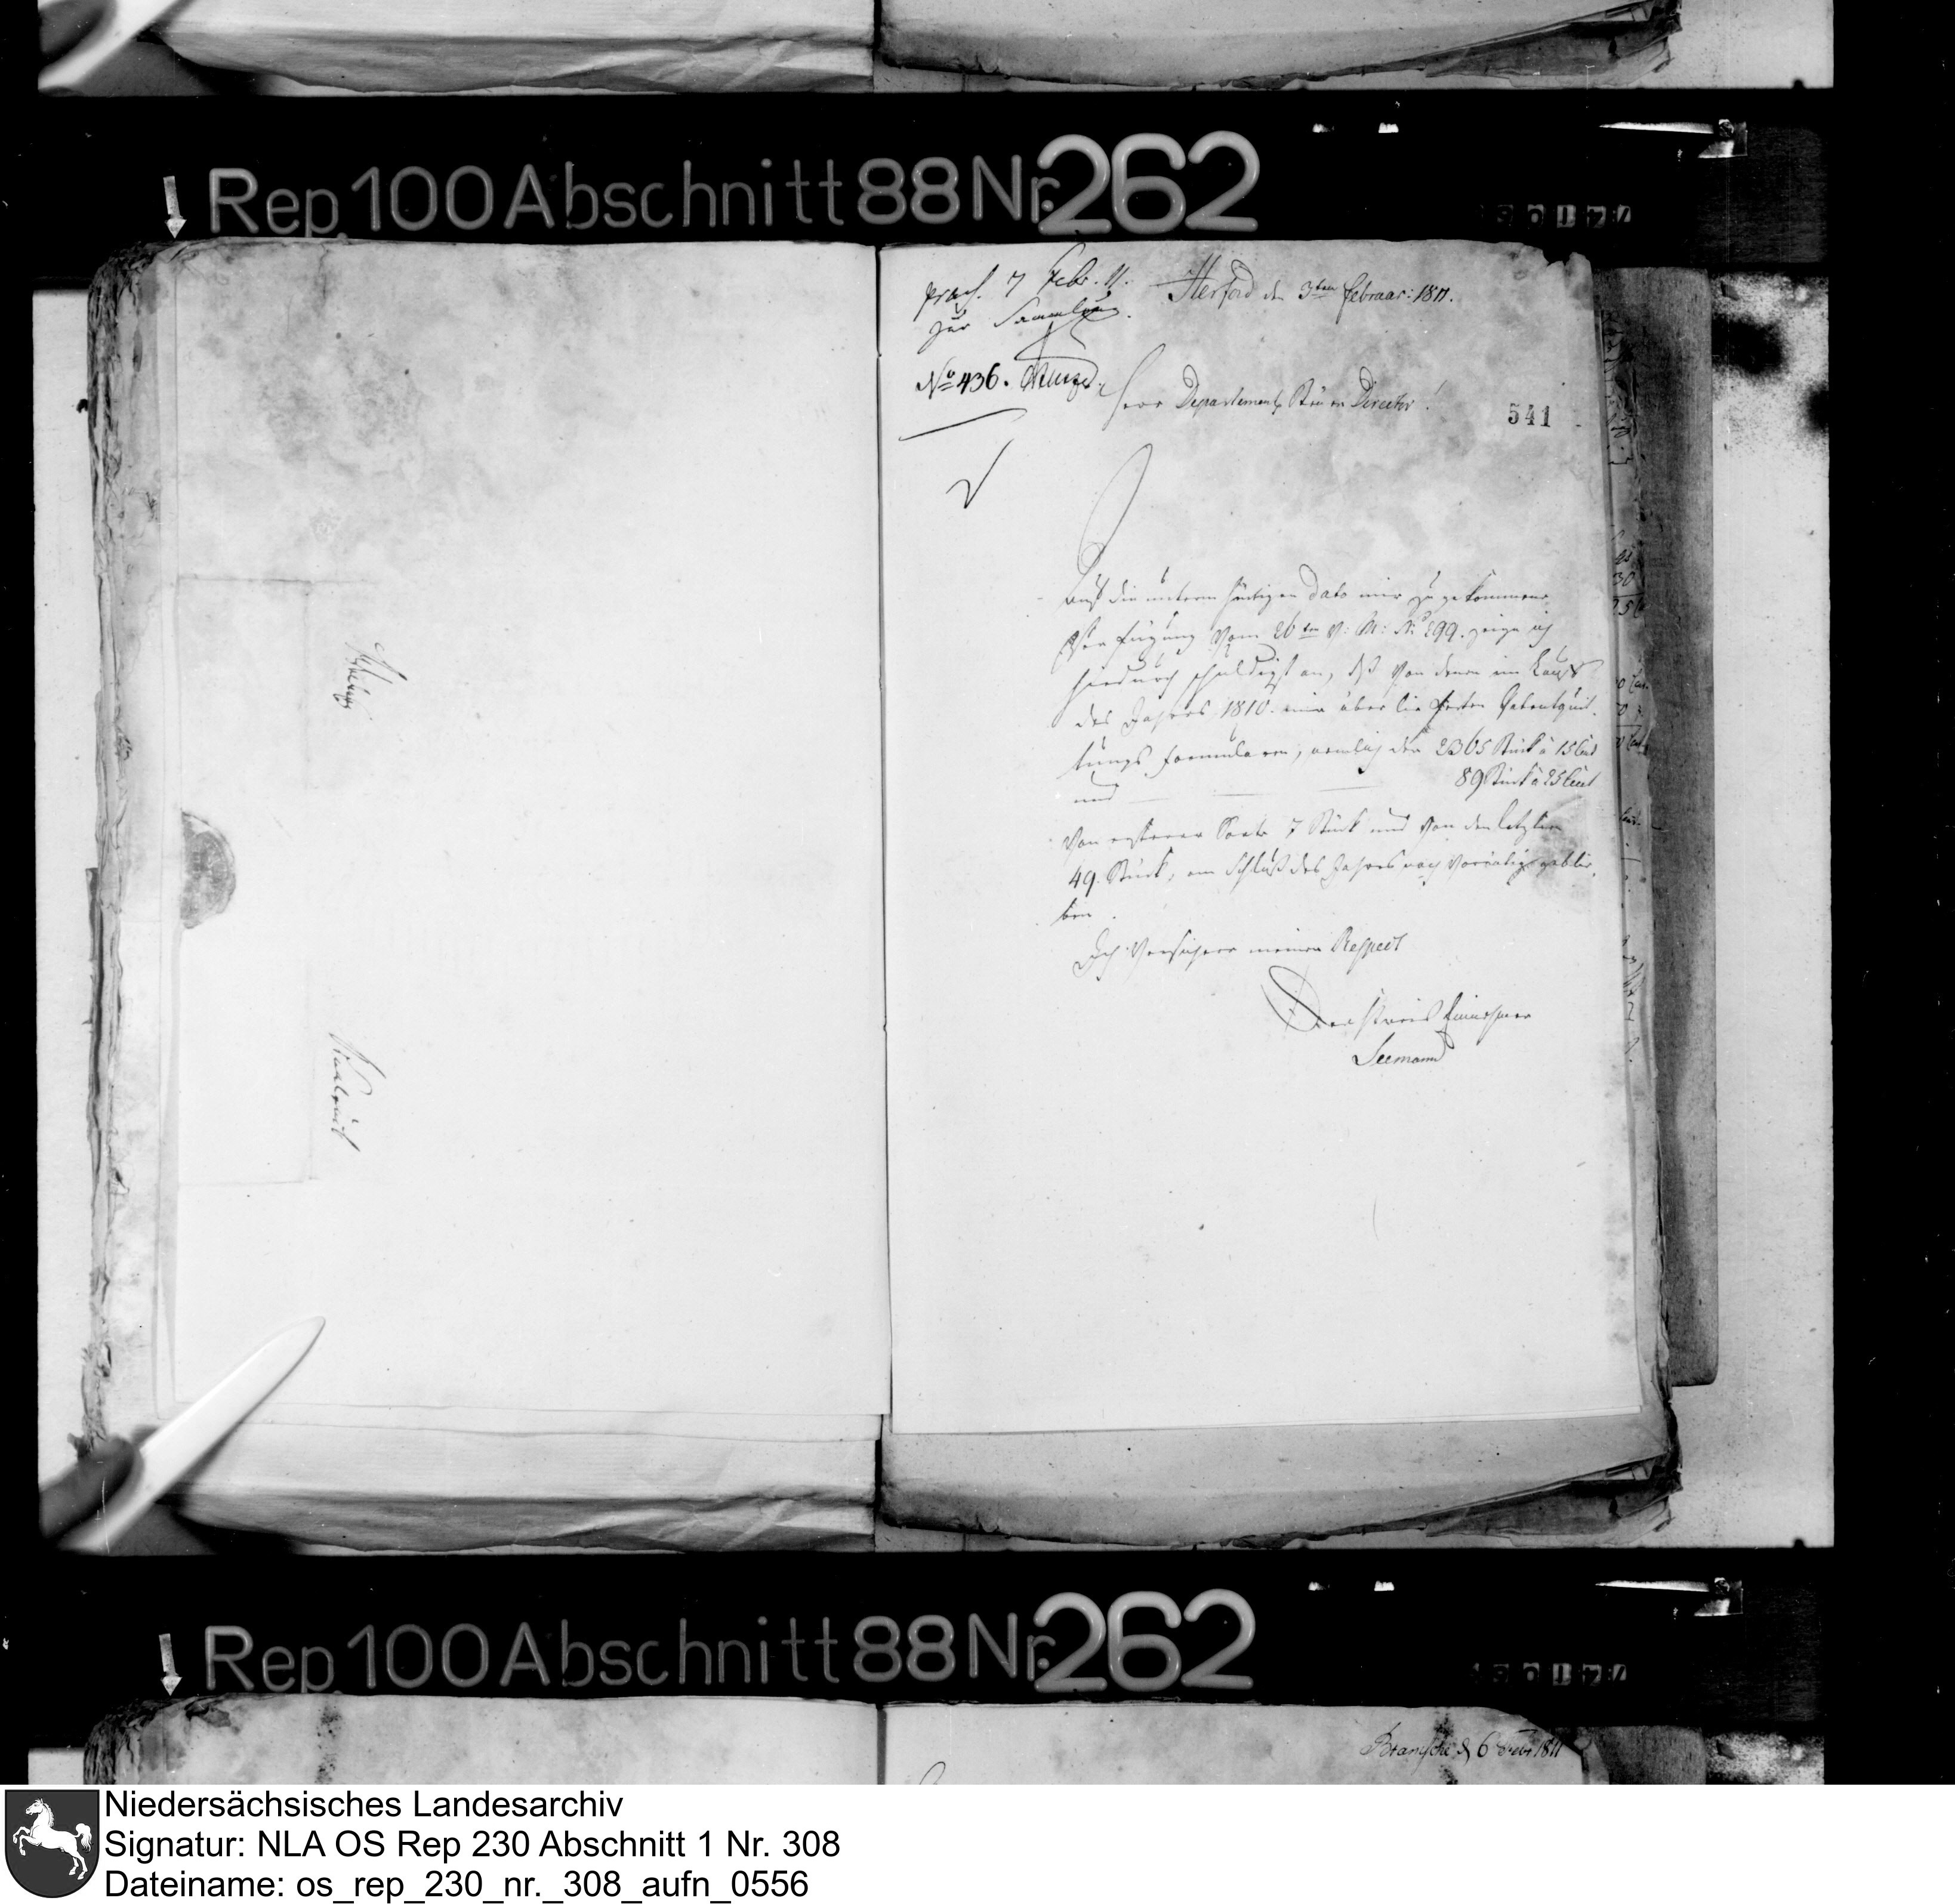 Rep. 100 Abschnitt 88 Nr. 262
praes. 7 Febr. 11.
zur Sammlung.
No 436.
Herford den 3ten Februar: 1811.
Herr Departements Steuer Director!
541
Auf die unterm heutigen Dato mir zu gekommene
Verfügung vom 26ten v: M: No 299. zeige ich
hierdurch schuldigst an, daß von denen im Laufe
des Jahres 1810. mir über lie ferten Patentquit-
tungs Formularen, nemlich der 2365 Stück a 15 Cent
und 89 Stück a 25 Cent
von ersterer Sorte 7 Stück und von den letztern
49. Stück, am Schluß des Jahres noch vorrätig geblie-
ben.
Ich versichere meinen Respect
Der Kreis Einnehmer
Seemann
Rep. 100 Abschnitt 88 Nr. 262
Bramsche d 6 Febr 1811
Niedersächsisches Landesarchiv
Signatur: NLA OS Rep 230 Abschnitt 1 Nr. 308
Dateiname: os_rep_230_nr._308_aufn_0556